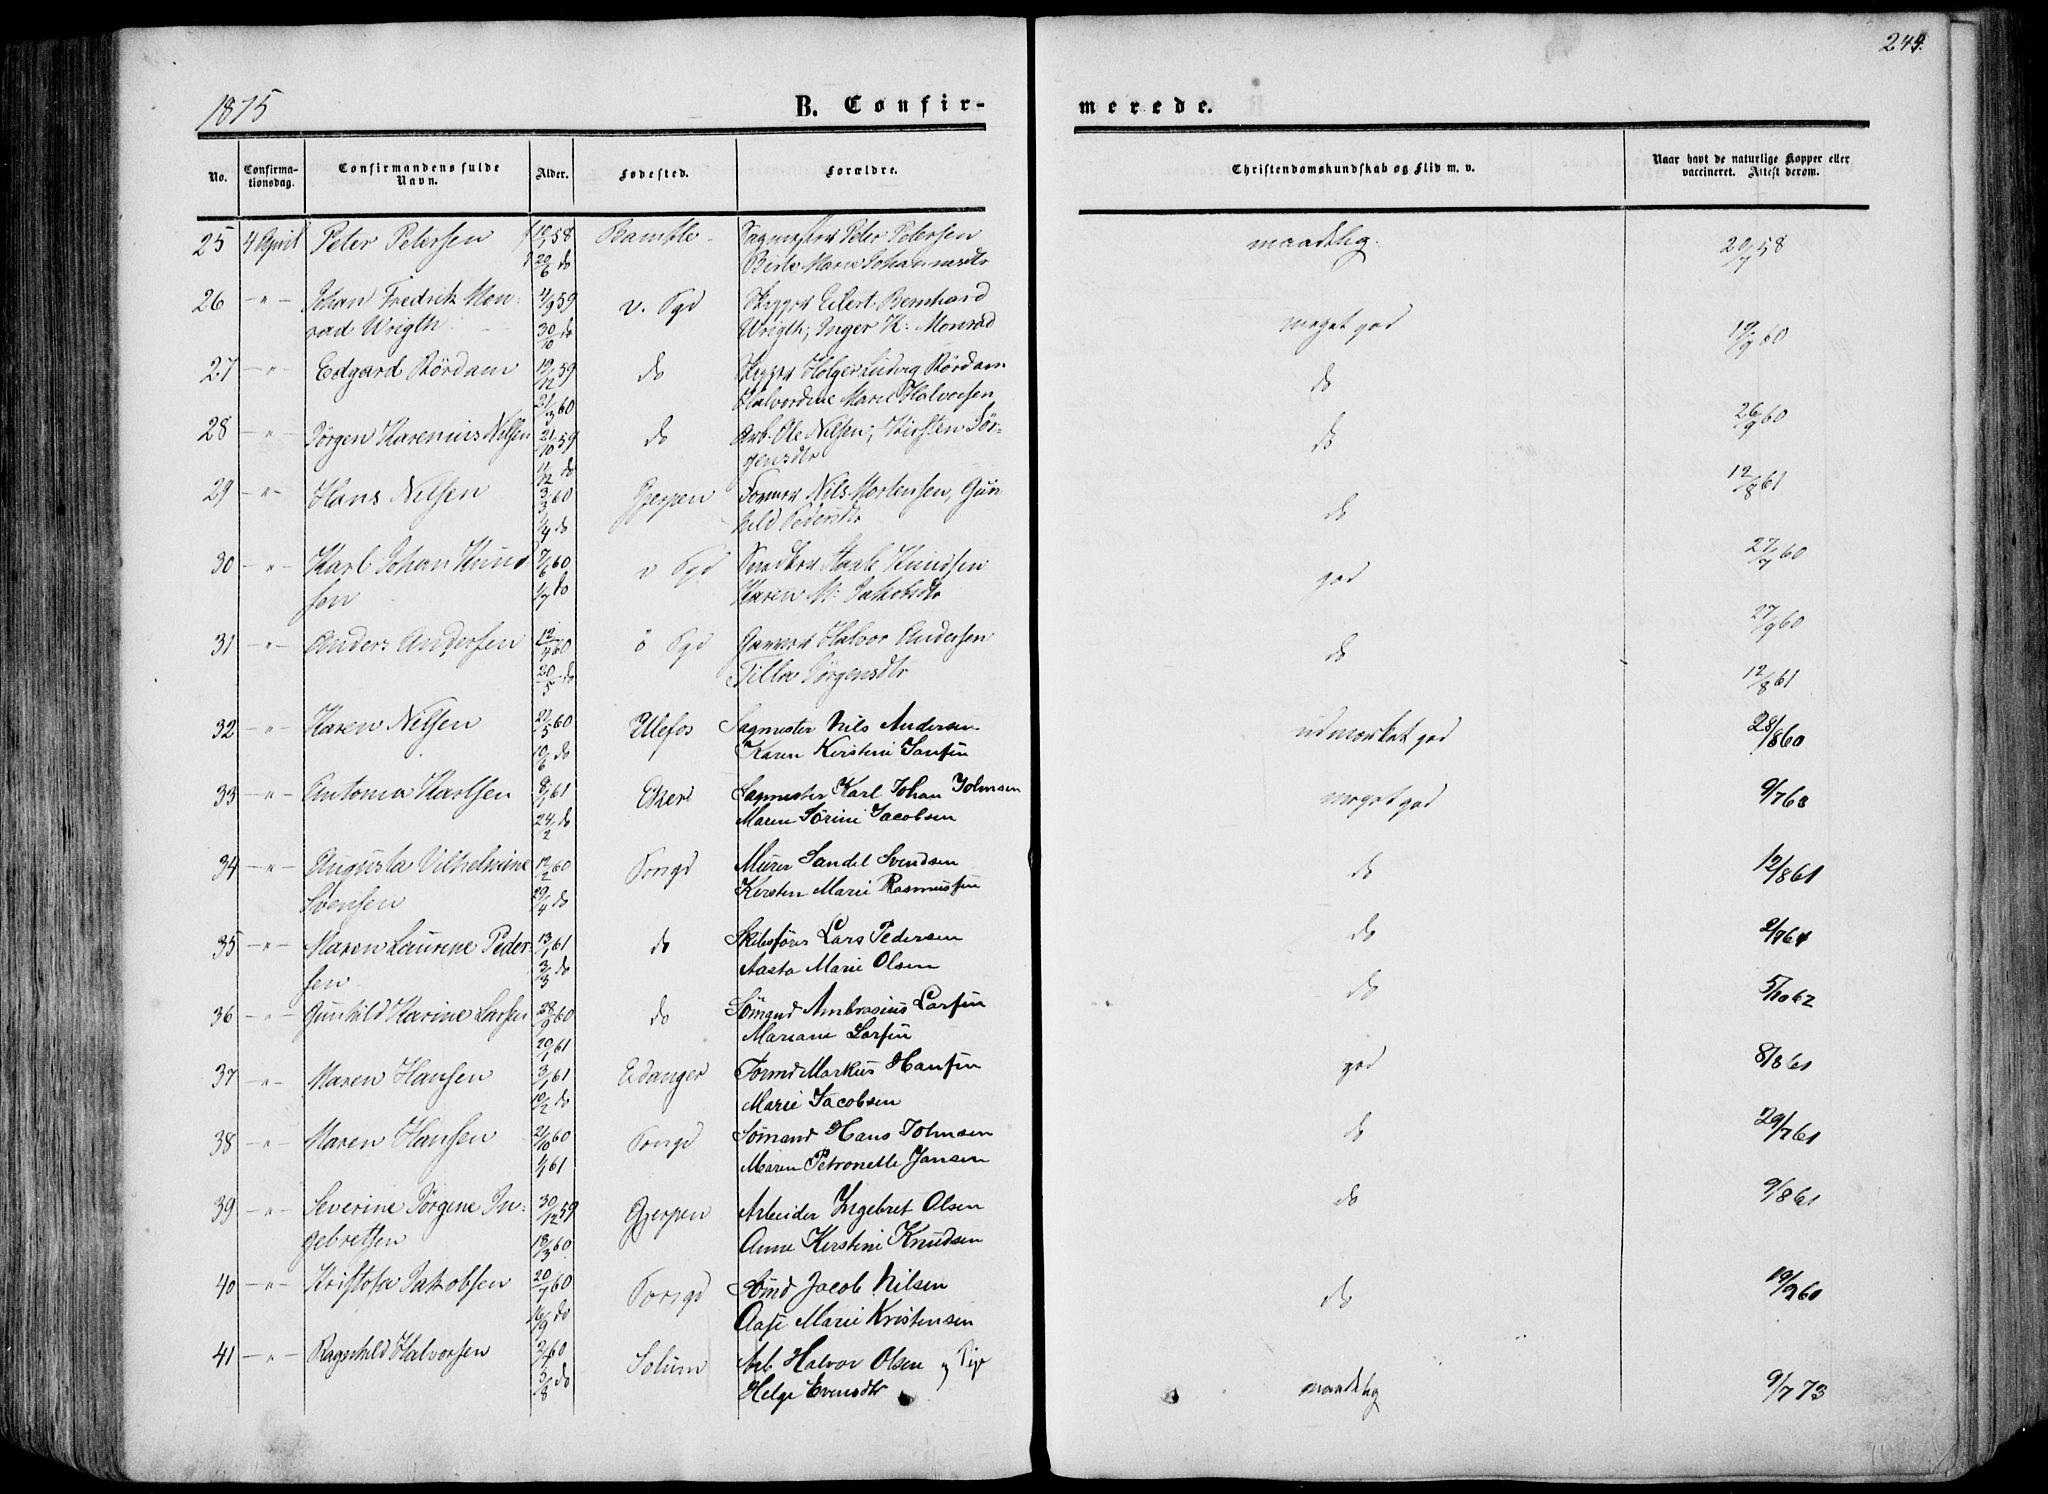 244.
1875
B. Confir-
merede.
No.
Confirma-
tionsdag.
Confirmandens fulde
Navn.
Alder.
Fødested.
Forældre.
Christendomskundskab og Flid m. v.
Naar havt de naturlige Kopper eller
vaccineret. Attest derom.
25 4 April Peter Petersen 58 Bamble Sagmester Peter Petersen maadelig. 20/7 58
20/6 do Birte Marie Johannesdtr
26 -"- Johan Fredrik Mon- 11/9 59 v. Pgd Skippr Eilert Bernhard meget god
rad Wrigth 30/10 do Wrigth, Inger K: Monrad 19/9 60
27 -"- Edgard Rördam 19/12 59 do Skippr Holger Ludvig Rördam do
21/3 60 Halvordine Marie Halvorsen
28 -"- Jörgen Karenius Nilsen 21/10 59 do Arb. Ole Nilsen, Kirsten Jör- do 26/9 60
11/12 do gensdtr
29 -"- Hans Nilsen 3/3 60 Gjerpen Nils Mortensen, Gun- do 12/8 61
1/4 do hild Pedersdtr
30 -"- Karl Johan Knud- 7/6 60 v Pgd Knudsen god 27/7 60
sen 1/7 do Karen M: Jakobsdtr
31 -"- Anders Andersen 12/4 60 ö Pgd Halvor Andersen do 27/9 60
20/5 do Tilla Jörgensdtr 12/8 61
32 -"- Karen Nilsen 21/5 60 Ulefos Sagmester Nils Andersen udmærket god 28/8 60
10/6 do Karen Kerstine Jansen
33 -"- Antonia Karlsen 8/1 61 Ekere Sagmester Karl Johan Johnsen meget god 9/7 63
24/2 do Maren Sörine Jacobsen
34 -"- Augusta Vilhelmine 12/2 60 Porsgd Murer Sandel Svendsen do 12/8 61
Svensen 29/4 do Kersten Marie Rasmussen
35 -"- Maren Laurine Peder- 13/1 61 do Skibsfører Lars Pedersen do 2/9 64
sen 3/3 do Aasta Marie Olsen
36 -"- Gunhild Karine Larsen 28/9 60 do Sömand Ambrosius Larsen do 5/10 62
20/1 61 Mariane Larsen
37 -"- Maren Hansen 3/1 61 Eidanger Tormd Markus Hansen god 8/8 61
10/2 do Marie Jacobsen
38 -"- Maren Hansen 21/10 60 Porsgd Sömand Hans Johnsen do 29/7 61
1/1 61 Maren Petronelle Jansen
39 -"- Severine Jörgine In- 30/12 59 Gjerpen Arbeider Ingebret Olsen do 9/8 61
gebretsen 18/3 60 Anne Kerstine Knudsen
40 -"- Kristofa Jakobsen 20/7 60 Porsgd Sömd Jacob Nilsen do 19/9 60
16/9 do Aase Marie Kristensen
41 -"- Ragnhild Halvorsen 60 Solum Arb. Halvor Olsen og Pige maadelig 9/7 73
5/8 do Helge Evensdtr